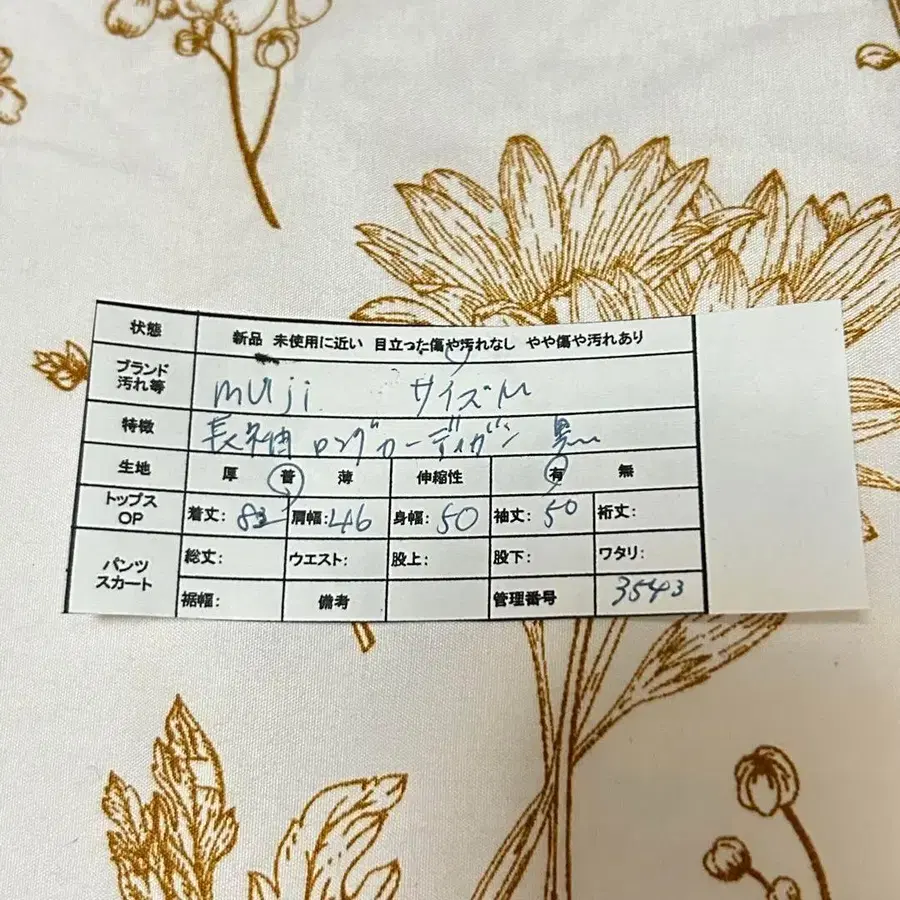 状態 新品 未使用に近い 目立った傷や汚れなし やや傷や汚れあり
ブランド 汚れ等 muji サイズM
特徴 長袖 ロングカーディガン 黒
生地 厚 普 薄 伸縮性 有 無
トップス OP 着丈: 82 肩幅: 46 身幅: 50 袖丈: 50 裄丈:
パンツ スカート 総丈: ウエスト: 股上: 股下: ワタリ:
裾幅: 備考 管理番号 3543